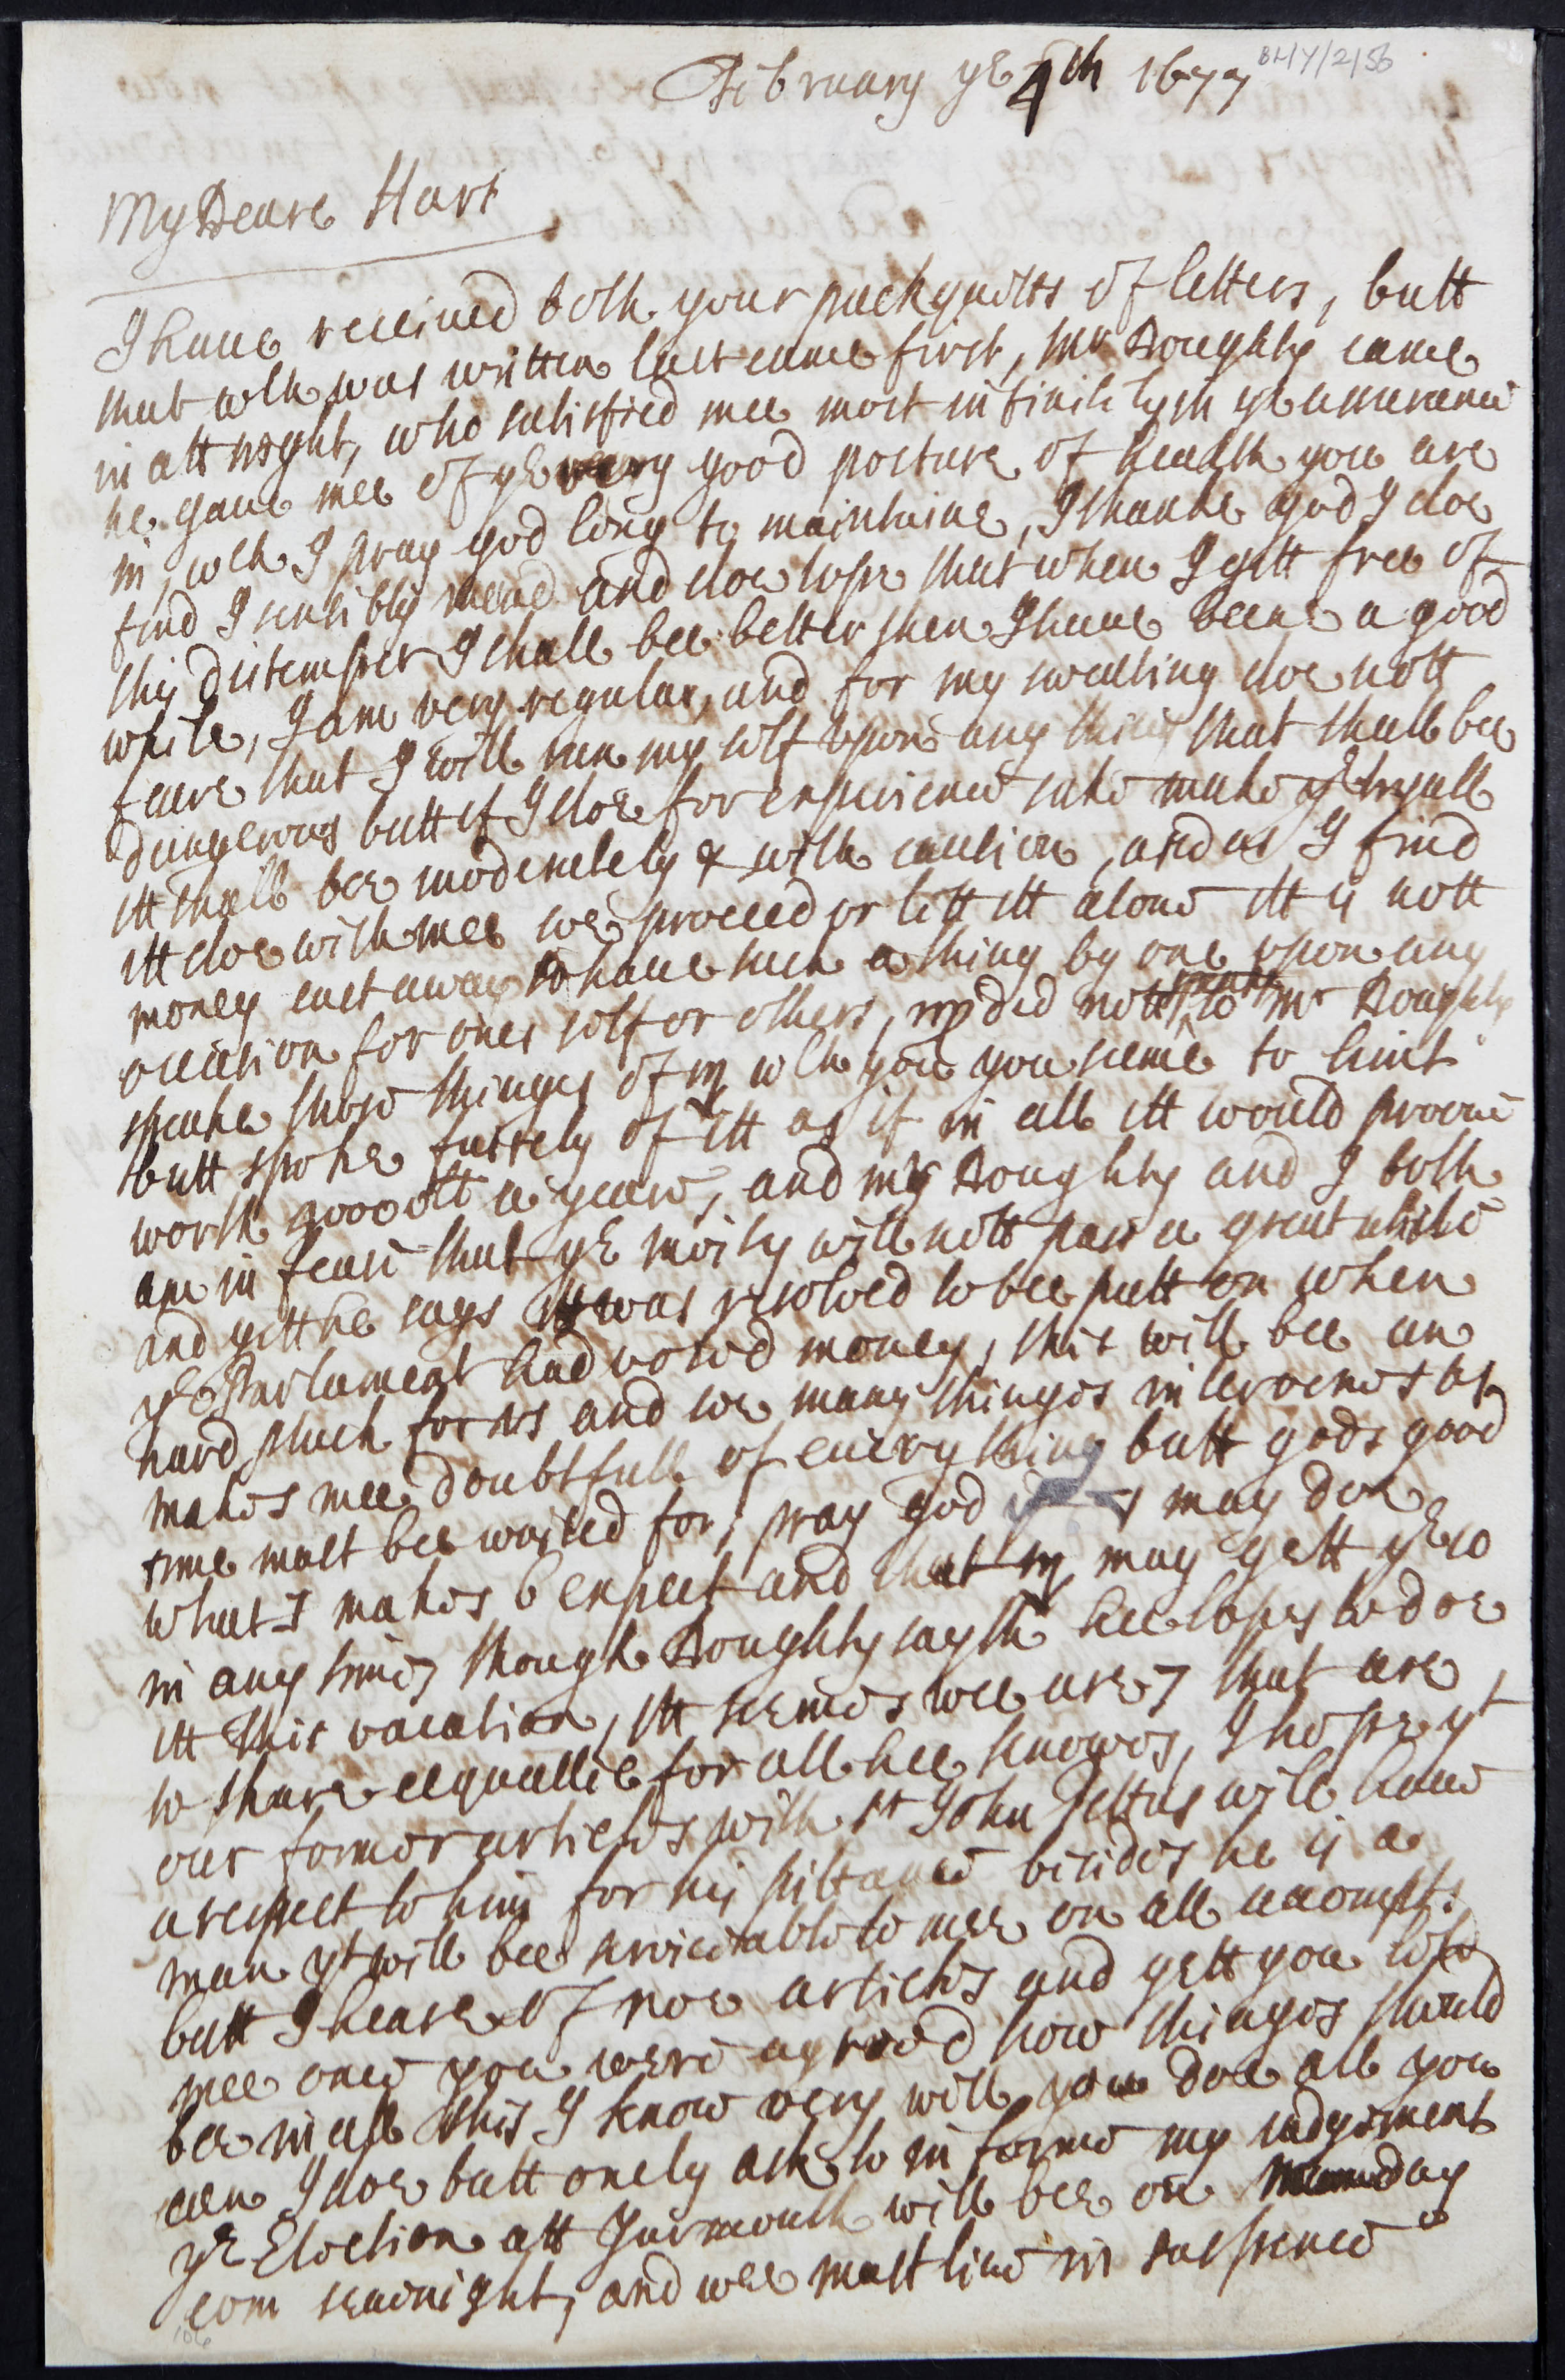 BL/Y/2/56
February ye 4th 1677
My Deare Hart
I haue receiued both your packquitts of letters, butt
that wch was written last came first, Mr Doughty came
in att night, who satisfied mee most infinitly in ye assurance
he gaue mee of ye very good posture of health you are
in, wch I pray god long to maintaine, I thanke god I doe
find I sensibly mend and doe hope that when I gett free of
this distemper I shall bee better then I haue beene a good
while, I am very regular, and for my swetting doe nott
feare that I will run my self upon any thing that shall bee
dangerous butt if I doe for experience sake make ye tryall
itt shall bee moderately & with caution, and as I find
itt doe with mee soe proceed or lett itt alone itt is nott
money cast away to haue such a thing by one upon any
occation for ones self or others, did nott to Mr Doughty
speake those things of wch you you seeme to hint
butt spoke fairely of itt as if in all itt would prooue
worth a yeare, and Mr Doughty and I both
are in feare that ye moity will nott pass a great while
and yett he says itt was resolved to bee putt on when
ye Parlament had voted money, this will bee an
hard pluck for us and soe many things intervenes as
makes mee doubtfull of euery thing butt gods good
time must bee waited for, pray god may doe
what I makes expect and that may gett ye 10
in any time, though Doughty sayth hee hopes to doe
itt this vacation, itt seemes wee are 7 that are
to share eequallie for all hee knowes, I hope yt
our former articles with Sr John Pettus will haue
a respect to him for his pittance besides he is a
man yt will bee serviceable to mee on all accompts
butt I heare of noe articles and yett you told
mee once you were agreed how things should
bee in all this I know very well you doe all you
can I doe butt onely ask to informe my judgment
ye Election att Yarmouth will bee on munday
com seauenight, and wee must liue in suspence
106